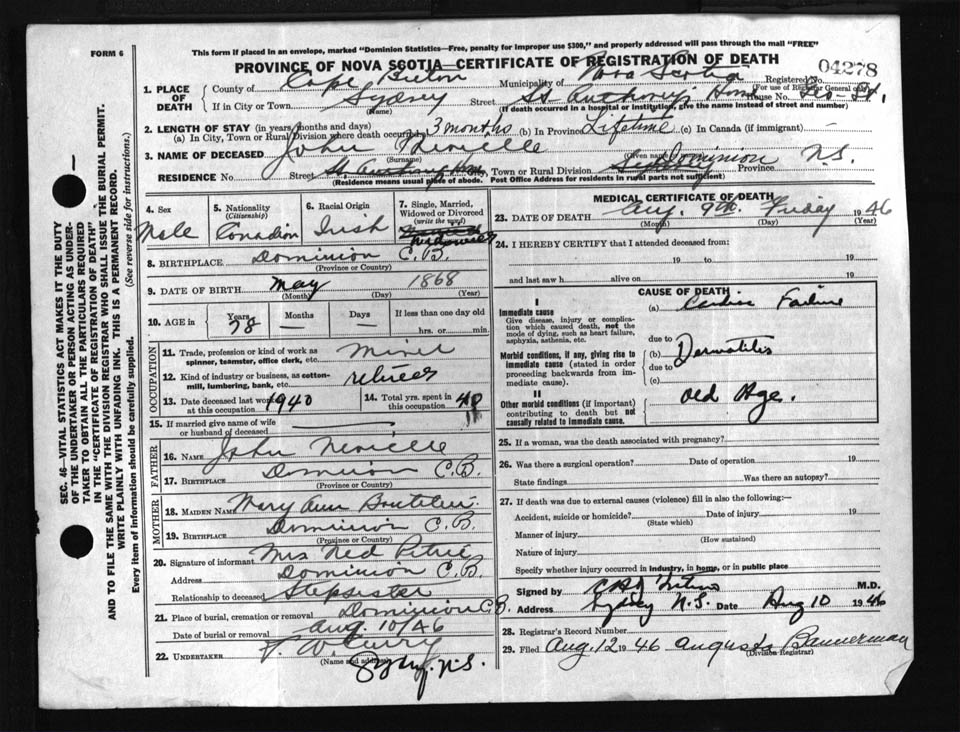 FORM 6
This form if placed in an envelope, marked "Dominion Statistics—Free, penalty for improper use $300," and properly addressed will pass through the mail "FREE"
PROVINCE OF NOVA SCOTIA—CERTIFICATE OF REGISTRATION OF DEATH
04278
1. PLACE OF DEATH County of Cape Breton Municipality of Nova Scotia Registered No.
(For use of Registrar General only)
If in City or Town Sydney Street St. Anthony's Home House No.
(Name) (If death occurred in a hospital or institution, give the name instead of street and number)
2. LENGTH OF STAY (in years, months and days)
(a) In City, Town or Rural Division where death occurred 3 months (b) In Province Lifetime (c) In Canada (if immigrant) -
3. NAME OF DECEASED John Neville
(Surname) (Given name)
RESIDENCE No. Street City, Town or Rural Division Dominion Province N.S.
(Residence means usual place of abode. Post Office Address for residents in rural parts not sufficient)
4. Sex Male
5. Nationality (Citizenship) Canadian
6. Racial Origin Irish
7. Single, Married, Widowed or Divorced (write the word) Widower
8. BIRTHPLACE Dominion C.B.
(Province or Country)
9. DATE OF BIRTH May 1868
(Month) (Day) (Year)
10. AGE in Years 78 Months — Days — If less than one day old
hrs. or min.
OCCUPATION
11. Trade, profession or kind of work as spinner, teamster, office clerk, etc. Miner
12. Kind of industry or business, as cotton-mill, lumbering, bank, etc. retired
13. Date deceased last worked at this occupation 1940
14. Total yrs. spent in this occupation 48
15. If married give name of wife or husband of deceased
FATHER
16. NAME John Neville
17. BIRTHPLACE Dominion C.B.
(Province or Country)
MOTHER
18. MAIDEN NAME Mary Ann
19. BIRTHPLACE Dominion C.B.
(Province or Country)
20. Signature of informant Mrs Ned Petrie
Address Dominion C.B.
Relationship to deceased Stepsister
21. Place of burial, cremation or removal Dominion C.B.
Date of burial or removal Aug. 10/46
22. UNDERTAKER F. W. Curry
(Name and address)
Sydney. N.S.
MEDICAL CERTIFICATE OF DEATH
23. DATE OF DEATH Aug. 9th. Friday 1946
(Month) (Day) (Year)
24. I HEREBY CERTIFY that I attended deceased from:
19 to 19
and last saw h alive on 19
CAUSE OF DEATH
I
Immediate cause
Give disease, injury or complication which caused death, not the mode of dying, such as heart failure, asphyxia, asthenia, etc.
(a) Cardiac Failure
due to
Morbid conditions, if any, giving rise to immediate cause (stated in order proceeding backwards from immediate cause).
(b) Dermatitis
due to
(c)
II
Other morbid conditions (if important) contributing to death but not causally related to immediate cause.
old Age.
25. If a woman, was the death associated with pregnancy?
26. Was there a surgical operation? Date of operation 19
State findings Was there an autopsy?
27. If death was due to external causes (violence) fill in also the following:—
Accident, suicide or homicide? Date of injury 19
(State which)
Manner of injury
(How sustained)
Nature of injury
Specify whether injury occurred in industry, in home, or in public place
Signed by M.D.
Address Sydney N.S. Date Aug 10 1946
28. Registrar's Record Number
29. Filed Aug. 12 1946 Augusta Bannerman
(Division Registrar)
SEC. 46—VITAL STATISTICS ACT MAKES IT THE DUTY OF THE UNDERTAKER OR PERSON ACTING AS UNDERTAKER TO OBTAIN ALL THE PARTICULARS REQUIRED IN THE "CERTIFICATE OF REGISTRATION OF DEATH" AND TO FILE THE SAME WITH THE DIVISION REGISTRAR WHO SHALL ISSUE THE BURIAL PERMIT.
WRITE PLAINLY WITH UNFADING INK. THIS IS A PERMANENT RECORD.
Every item of information should be carefully supplied. (See reverse side for instructions.)